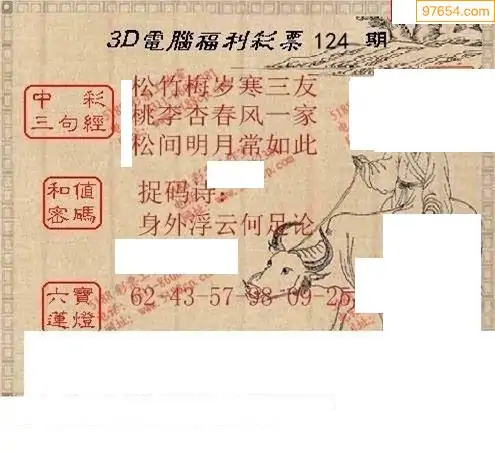 97654.com
3D電腦福利彩票 124 期
中彩
三句經
松竹梅岁寒三友
桃李杏春风一家
松间明月常如此
和值
密碼
捉码诗:
身外浮云何足论
六寶
蓮燈
62-43-57-98-09-25